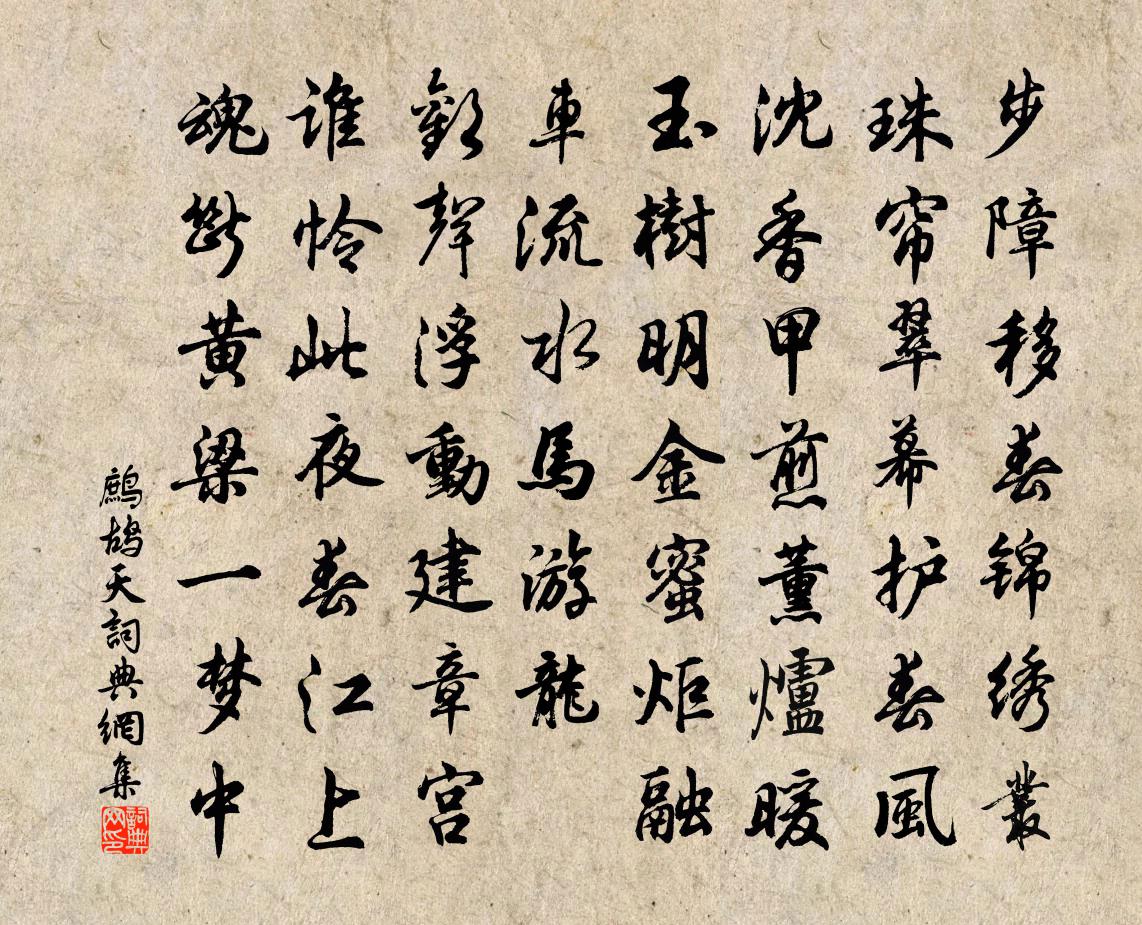 步障移春锦绣叢
珠帘翠幕护春風
沈香甲煎薰爐暖
玉樹明金蜜炬融
車流水馬游龍
歡聲浮動建章宫
谁怜此夜春江上
魂斷黄梁一梦中
鷓鴣天詞典網集
詞典網印